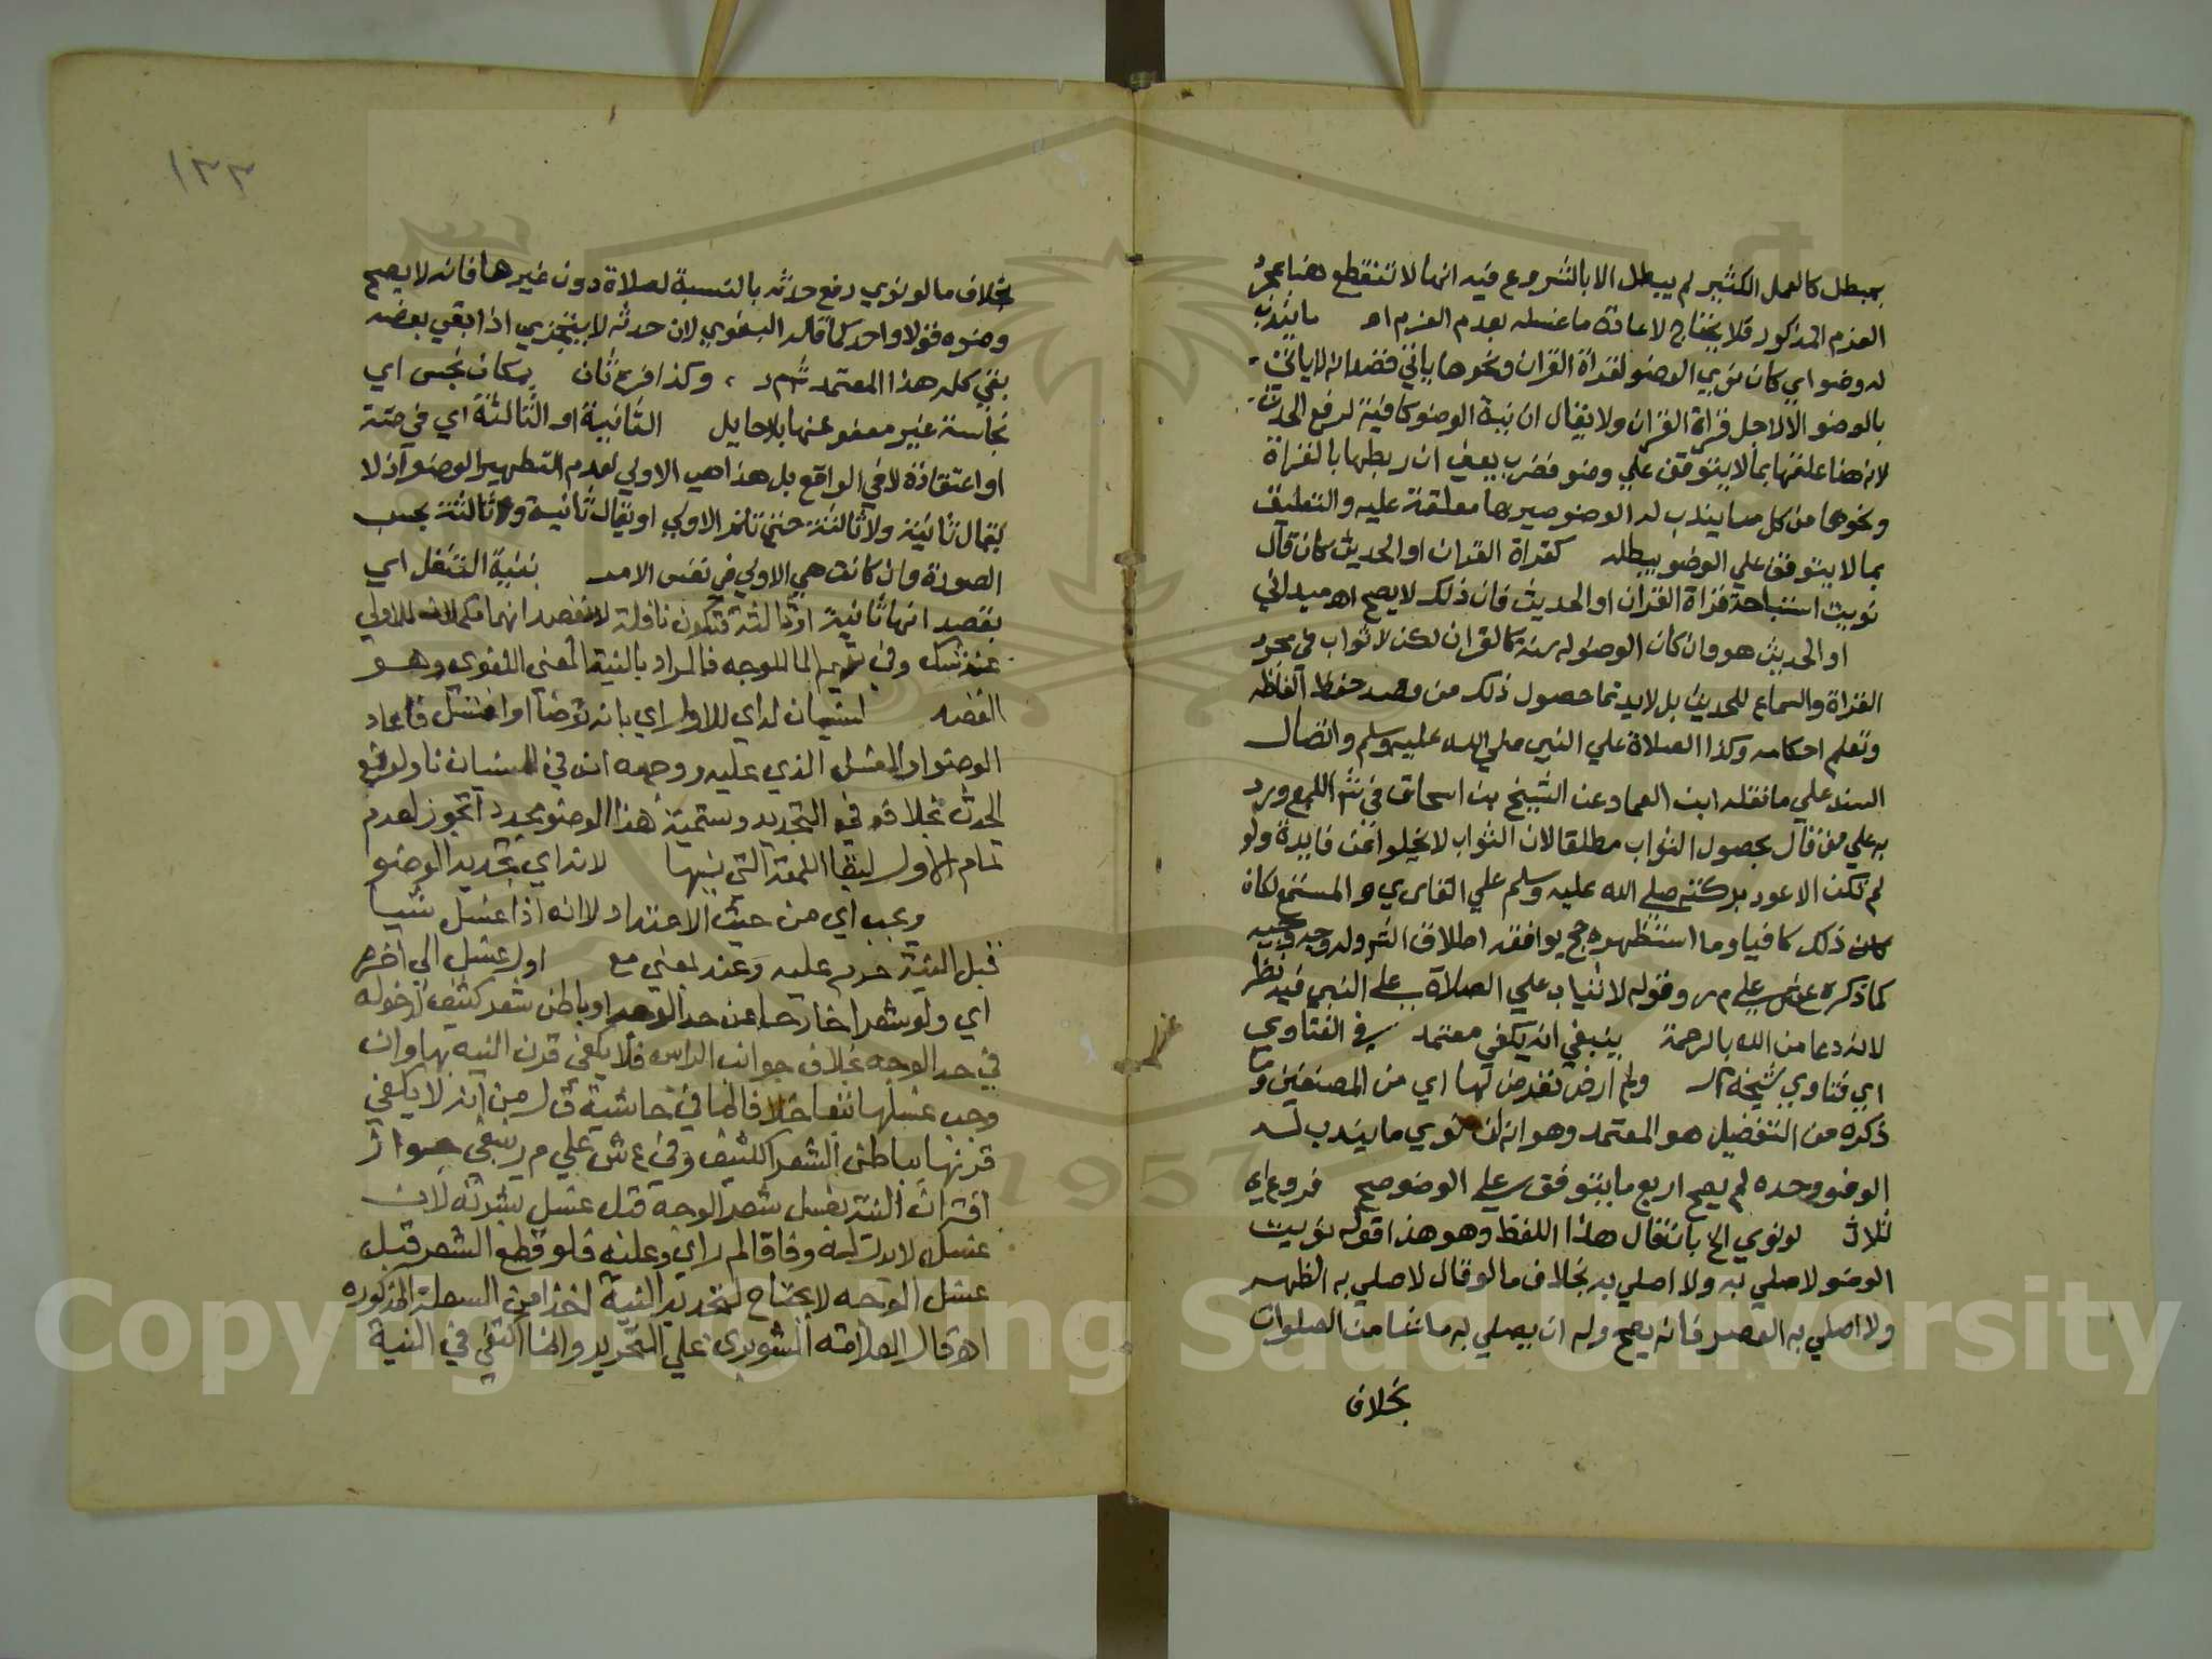 بمبطل كالعمل الكثير لم يبطل الا بالشروع فيه انها لا تنقطع هنا بمجرد
العزم المذكور فلا يحتاج لاعادة ما غسله بعدم العزم اه ما يندب
له وضو اي كان نوي الوضو لقراة القران ونحوها ياتي
بالوضو الا لاجل قراة القران ولا يقال ان نية الوضو كافية لرفع الحدث
لانه هنا علقها بما لا يتوقف علي وضو ان ربطها بالقراة
ونحوها من كل ما يندب له الوضو صيرها معلقة عليه والتعليق
بما لا يتوقف علي الوضو يبطله كقراة القران او الحديث كان قال
نويت استباحة قراة القران او الحديث فان ذلك لا يصح اه ميداني
او الحديث هو وان كان الوضو له سنة كالقران لكن لا ثواب في مجرد
القراة والسماع للحديث بل لا بد من قصد حفظ الفاظه
وتعلم احكامه وكذا الصلاة علي النبي صلي الله عليه وسلم واتصال
السند علي ما نقله ابن العماد عن الشيخ بن اسحاق في شر اللمع ورد
به علي من قال بحصول الثواب مطلقا لان الثواب لا يخلوا عن فايدة ولو
لم تكن الا عود بركته صلي الله عليه وسلم علي القاري والمستمع لكان
كان ذلك كافيا وما استظهره حج يوافقه اطلاق الشر وله وجه وجيه
كما ذكره ع ش علي م ر وقوله لا ثياب علي الصلاة علي النبي فيه نظر
لانه دعا من الله بالرحمة ينبغي انه يكفي معتمد في الفتاوي
اي فتاوي شيخه م ر ولم ار من تعرض لها اي من المصنفين وما
ذكره من التفضيل هو المعتمد وهو انه ان نوي ما يندب له
الوضو وحده لم يصح او مع ما يتوقف علي الوضو صح فروع اي
ثلاث لو نوي الخ بان قال هذا اللفظ وهو هذا قوله نويت
الوضو لاصلي به ولا اصلي به بخلاف ما لو قال لاصلي به الظهر
ولا اصلي به العصر فانه يصح وله ان يصلي به ما شا من الصلوات
بخلاف
١٣٣
بخلاف ما لو نوي رفع حدثه بالنسبة لصلاة دون غيرها فانه لا يصح
وضوه قولا واحد كما قاله البغوي لان حدثه لا يتجزي اذا بقي بعضه
بقي كله هذا المعتمد شر م ر وكذا قرره ثان بمكان نجس اي
نجاسة غير معفو عنها بلا حايل الثانية او الثالثة اي في
او اعتقاده لا في الواقع بل هذا هي الاولي لعدم التطهير الوضو اذ لا
يقال ثانية ولا ثالثة حتي تتم الاولي او يقال ثانية وثالثة بحسب
الصورة وان كانت هي الاولي في نفس الامر بنية التنفل اي
بقصد انها ثانية او ثالثة فتكون نافلة لا بقصد انهما مكملات للاولي
عند شك وفي الما للوجه فالمراد بالنية المعني اللغوي وهو
القصد لنسيان له اي للاول اي بانه توضا او اغتسل فاعاد
الوضو او الغسل الذي عليه ووجهه انه في النسيان ناو لرفع
الحدث بخلافه في التجديد وتسمية هذا الوضو مجددا تجوز لعدم
تمام الاول لبقا اللمعة التي نسيها لانه اي تجديد الوضو
ويجب اي من حيث الاعتداد لا انه اذا غسل شيا
قبل النية حرم عليه وعند بمعني مع اول غسل الي اخره
اي ولو شعرا خارجا عن حد الوجه او باطن شعر كثيف لدخوله
في حد الوجه بخلاف جوانب الراس فلا يكفي قرن النية بها وان
وجب غسلها تبعا خلافا لما في حاشية ق ل من انه لا يكفي
قرنها بباطن الشعر الكثيف وفي ع ش علي م ر ينبغي جواز
اقتران النية بغسل شعر الوجه قبل غسل بشرته لان
غسله وفاقا لم ر اي وعليه فلو قطع الشعر قبل
غسل الوجه لا يحتاج لتجديد النية اخذا من المذكوره
اه قال العلامة الشوبري علي التحرير وانما اكتفي في النية